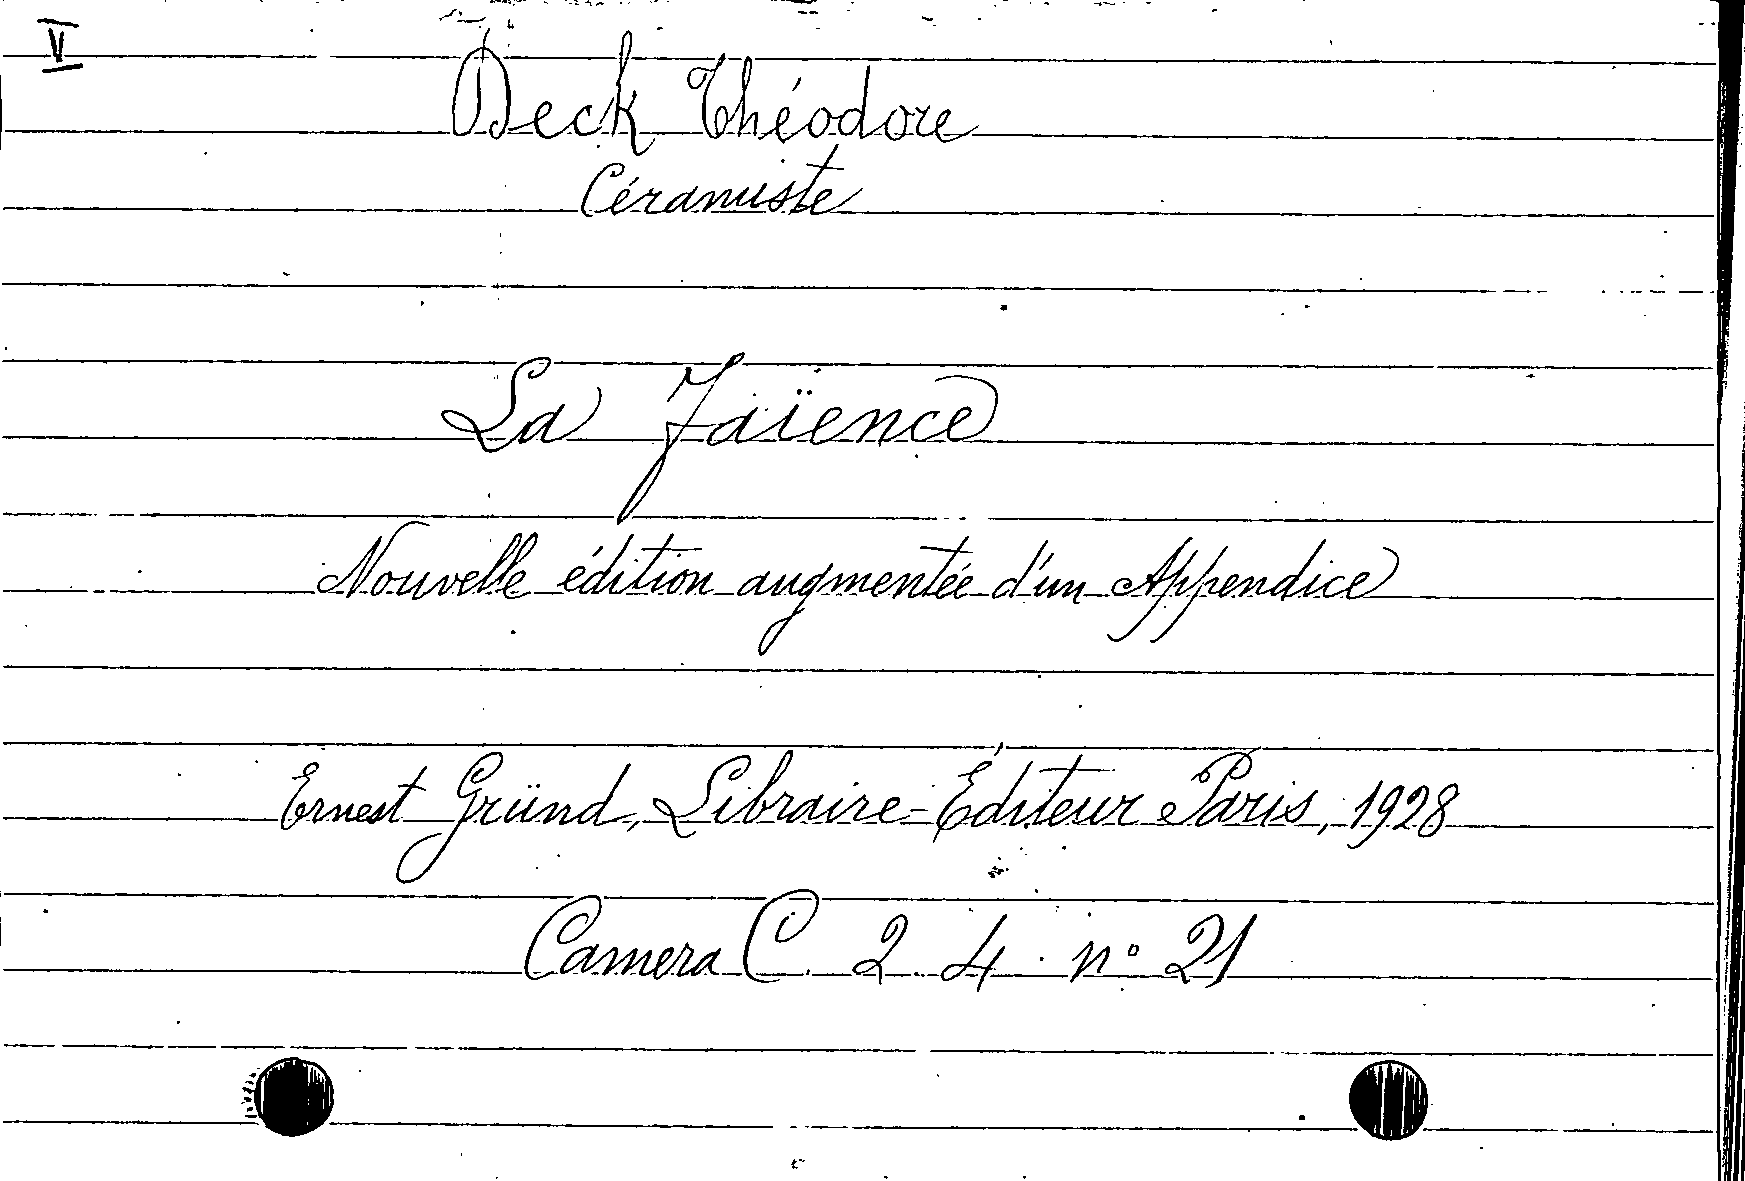 V
Deck Théodore
Céramiste
La Faïence
Nouvelle édition augmentée d'un Appendice
Ernest Gründ, Libraire-Éditeur Paris, 1928
Camera C. 2. 4. n° 21